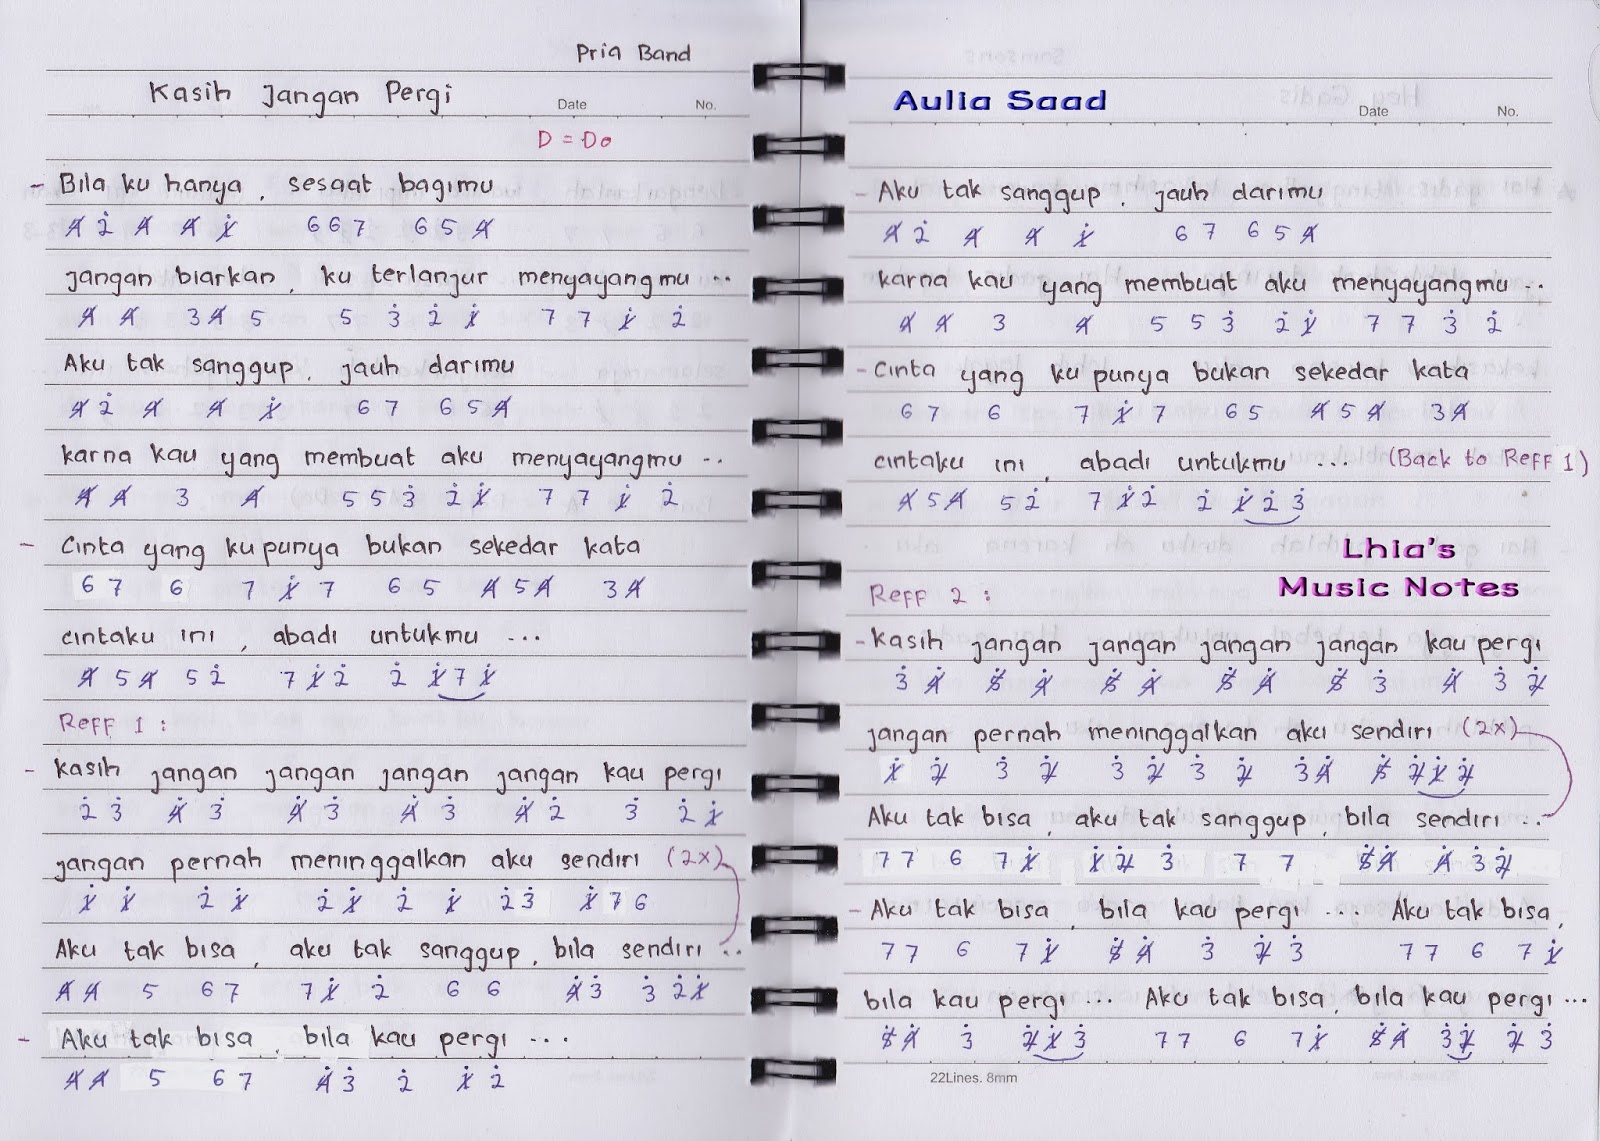 Pria Band
Kasih Jangan Pergi
Date No.
D = Do
- Bila ku hanya, sesaat bagimu
4̸ 2̇ 4̸ 4̸ 1̸̇ 6 6 7 6 5 4̸
jangan biarkan, ku terlanjur menyayangmu ...
4̸ 4̸ 3 4̸ 5 5 3̇ 2̇ 1̸̇ 7 7 1̸̇ 2̇
Aku tak sanggup, jauh darimu
4̸ 2̇ 4̸ 4̸ 1̸̇ 6 7 6 5 4̸
karna kau yang membuat aku menyayangmu ..
4̸ 4̸ 3 4̸ 5 5 3̇ 2̇ 1̸̇ 7 7 1̸̇ 2̇
- Cinta yang ku punya bukan sekedar kata
6 7 6 7 1̸̇ 7 6 5 4̸ 5 4̸ 3 4̸
cintaku ini, abadi untukmu ...
4̸ 5 4̸ 5 2̇ 7 1̸̇ 2̇ 2̇ 1̸̇ 7 1̸̇
Reff 1 :
- kasih jangan jangan jangan jangan kau pergi
2̇ 3̇ 4̸̇ 3̇ 4̸̇ 3̇ 4̸̇ 3̇ 4̸̇ 2̇ 3̇ 2̇ 1̸̇
jangan pernah meninggalkan aku sendiri (2x)
1̸̇ 1̸̇ 2̇ 1̸̇ 2̇ 1̸̇ 2̇ 1̸̇ 2̇ 3̇ 1̸̇ 7 6
Aku tak bisa, aku tak sanggup, bila sendiri ..
4̸ 4̸ 5 6 7 7 1̸̇ 2̇ 6 6 4̸̇ 3̇ 3̇ 2̇ 1̸̇
- Aku tak bisa, bila kau pergi ...
4̸ 4̸ 5 6 7 4̸̇ 3̇ 2̇ 1̸̇ 2̇
Aulia Saad
Date No.
- Aku tak sanggup, jauh darimu
4̸ 2̇ 4̸ 4̸ 1̸̇ 6 7 6 5 4̸
karna kau yang membuat aku menyayangmu ..
4̸ 4̸ 3 4̸ 5 5 3̇ 2̇ 1̸̇ 7 7 3̇ 2̇
- Cinta yang ku punya bukan sekedar kata
6 7 6 7 1̸̇ 7 6 5 4̸ 5 4̸ 3 4̸
cintaku ini, abadi untukmu ... (Back to Reff 1)
4̸ 5 4̸ 5 2̇ 7 1̸̇ 2̇ 2̇ 1̸̇ 2̇ 3̇
Lhia's
Music Notes
Reff 2 :
- Kasih jangan jangan jangan jangan kau pergi
3̇ 4̸̇ 5̸̇ 4̸̇ 5̸̇ 4̸̇ 5̸̇ 4̸̇ 5̸̇ 3̇ 4̸̇ 3̇ 2̸̇
jangan pernah meninggalkan aku sendiri (2x)
1̸̇ 2̸̇ 3̇ 2̸̇ 3̇ 2̸̇ 3̇ 2̸̇ 3̇ 4̸̇ 5̸̇ 2̸̇ 1̸̇ 2̸̇
Aku tak bisa, aku tak sanggup, bila sendiri ..
7 7 6 7 1̸̇ 1̸̇ 2̸̇ 3̇ 7 7 5̸̇ 4̸̇ 4̸̇ 3̇ 2̸̇
- Aku tak bisa, bila kau pergi ... Aku tak bisa,
7 7 6 7 1̸̇ 5̸̇ 4̸̇ 3̇ 2̸̇ 3̇ 7 7 6 7 1̸̇
bila kau pergi ... Aku tak bisa, bila kau pergi ...
5̸̇ 4̸̇ 3̇ 2̸̇ 1̸̇ 3̇ 7 7 6 7 1̸̇ 5̸̇ 4̸̇ 3̇ 2̸̇ 2̸̇ 3̇
22Lines. 8mm